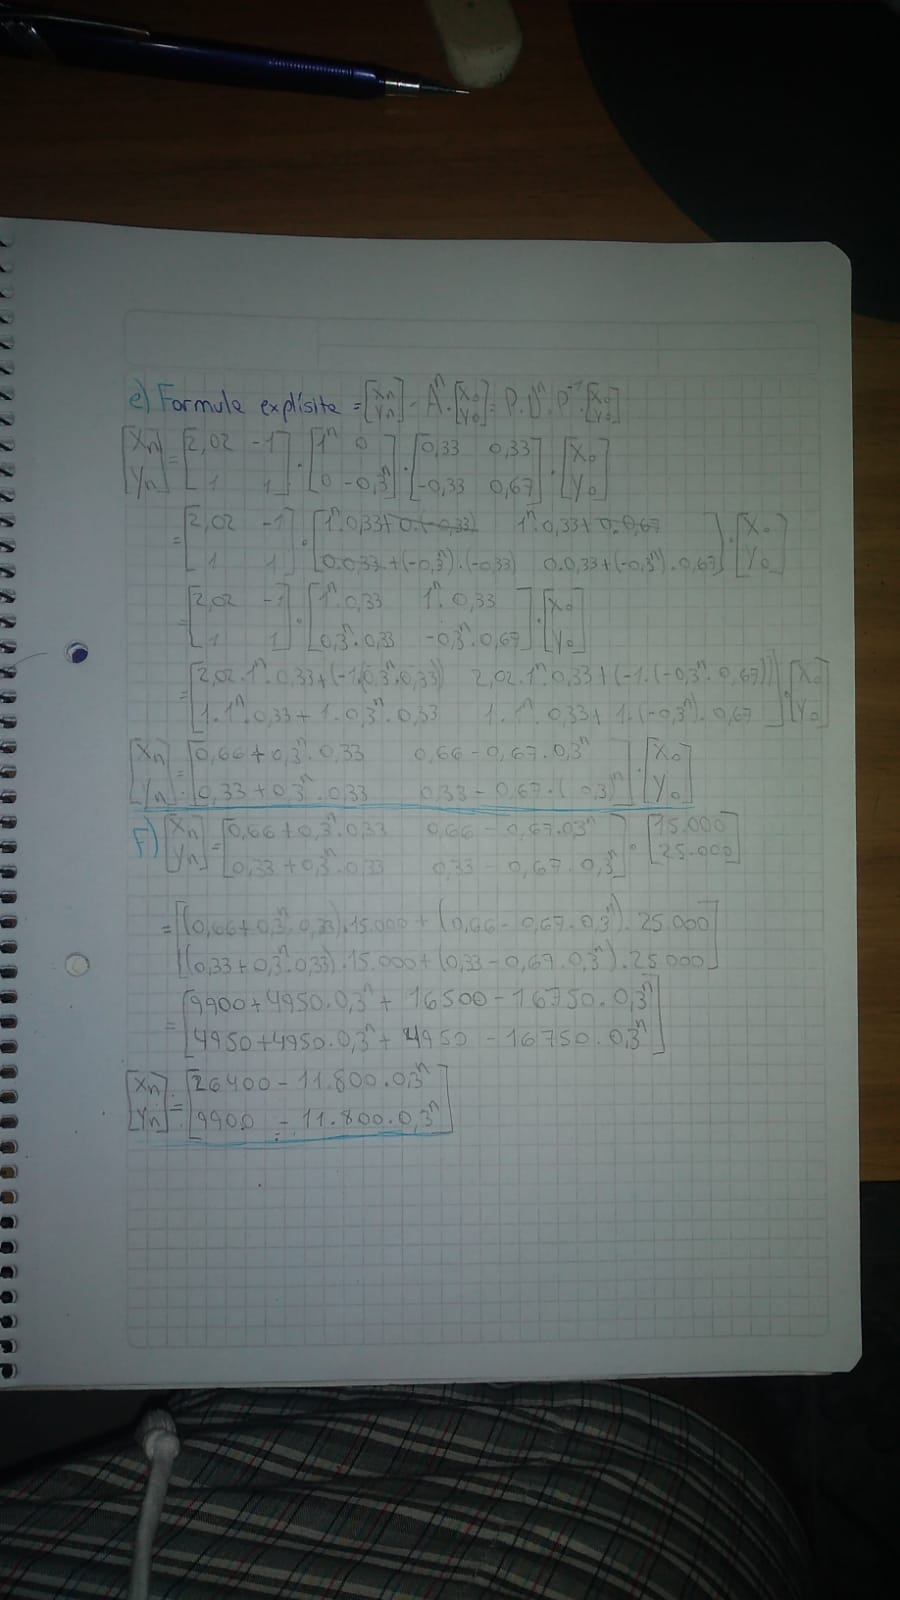 e) Formule explísite = [Xn Yn] = Aⁿ. [X₀ Y₀] = P. Dⁿ. P⁻¹. [X₀ Y₀]
[Xn Yn] = [2,02 -1 1 1] . [1ⁿ 0 0 -0,3ⁿ] . [0,33 0,33 -0,33 0,67] . [X₀ Y₀]
= [2,02 -1 1 1] . [1ⁿ.0,33+0.(-0,33) 1ⁿ.0,33+0.0,67 0.0,33+(-0,3ⁿ).(-0,33) 0.0,33+(-0,3ⁿ).0,67] . [X₀ Y₀]
= [2,02 -1 1 1] . [1ⁿ.0,33 1ⁿ.0,33 0,3ⁿ.0,33 -0,3ⁿ.0,67] . [X₀ Y₀]
= [2,02.1ⁿ.0,33+(-1.(0,3ⁿ.0,33) 2,02.1ⁿ.0,33+(-1.(-0,3ⁿ.0,67)) 1.1ⁿ.0,33+1.0,3ⁿ.0,33 1.1ⁿ.0,33+1.(-0,3ⁿ).0,67] . [X₀ Y₀]
[Xn Yn] = [0,66+0,3ⁿ.0,33 0,66-0,67.0,3ⁿ 0,33+0,3ⁿ.0,33 0,33-0,67.(0,3)ⁿ] . [X₀ Y₀]
F) [Xn Yn] = [0,66+0,3ⁿ.0,33 0,66-0,67.0,3ⁿ 0,33+0,3ⁿ.0,33 0,33-0,67.0,3ⁿ] . [15.000 25.000]
= [(0,66+0,3ⁿ.0,33).15.000+(0,66-0,67.0,3ⁿ).25.000
(0,33+0,3ⁿ.0,33).15.000+(0,33-0,67.0,3ⁿ).25.000]
= [9900+4950.0,3ⁿ+16500-16750.0,3ⁿ
4950+4950.0,3ⁿ+4950-16750.0,3ⁿ]
[Xn Yn] = [26400-11.800.0,3ⁿ 9900-11.800.0,3ⁿ]